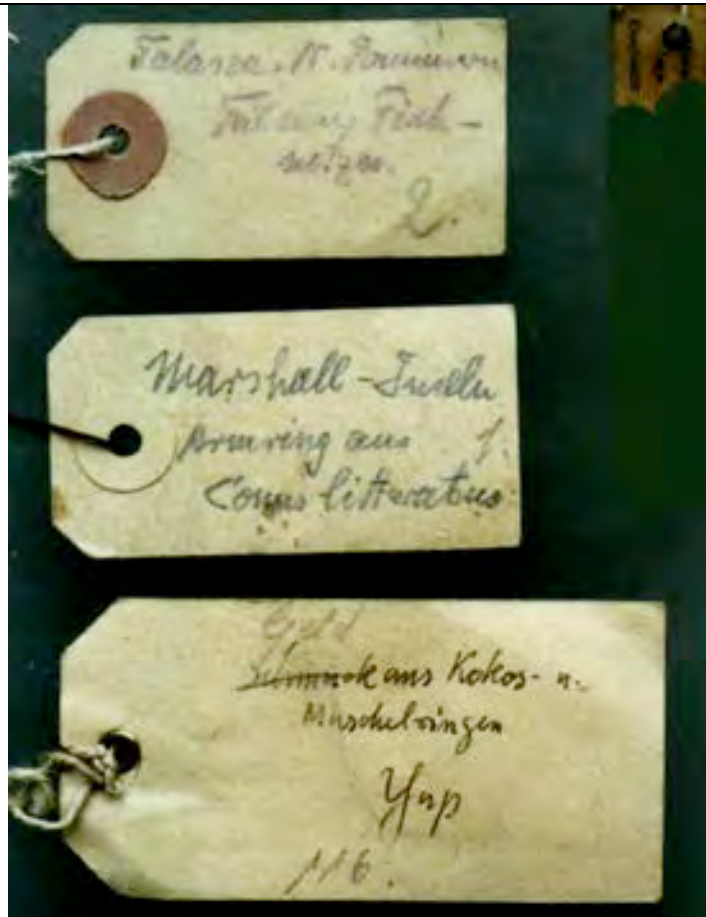 Talasea. N. Pommern
Fisch-
netzen.
2.
Marshall-Inseln
Armring aus 1.
Conus litteratus
Geld
Schmuck aus Kokos- u.
Muschelringen
Yap
116.